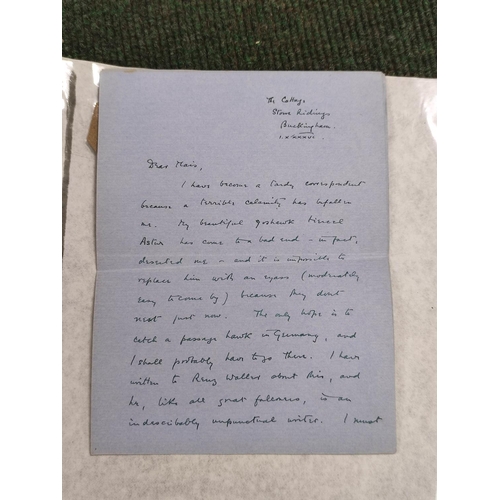 The Cottage
Stowe Ridings
Buckingham.
1.x.xxxvi.
Dear Mair,
I have become a tardy correspondent
because a terrible calamity has befallen
me. My beautiful goshawk tiercel
has come to a bad end - in fact,
deserted me - and it is impossible to
replace him with an eyass (moderately
easy to come by) because they don't
nest just now. The only hope is to
catch a passage hawk in Germany, and
I shall probably have to go there. I have
written to Renz Waller about this, and
he, like all great falconers, is an
indescribably unpunctual writer. I must